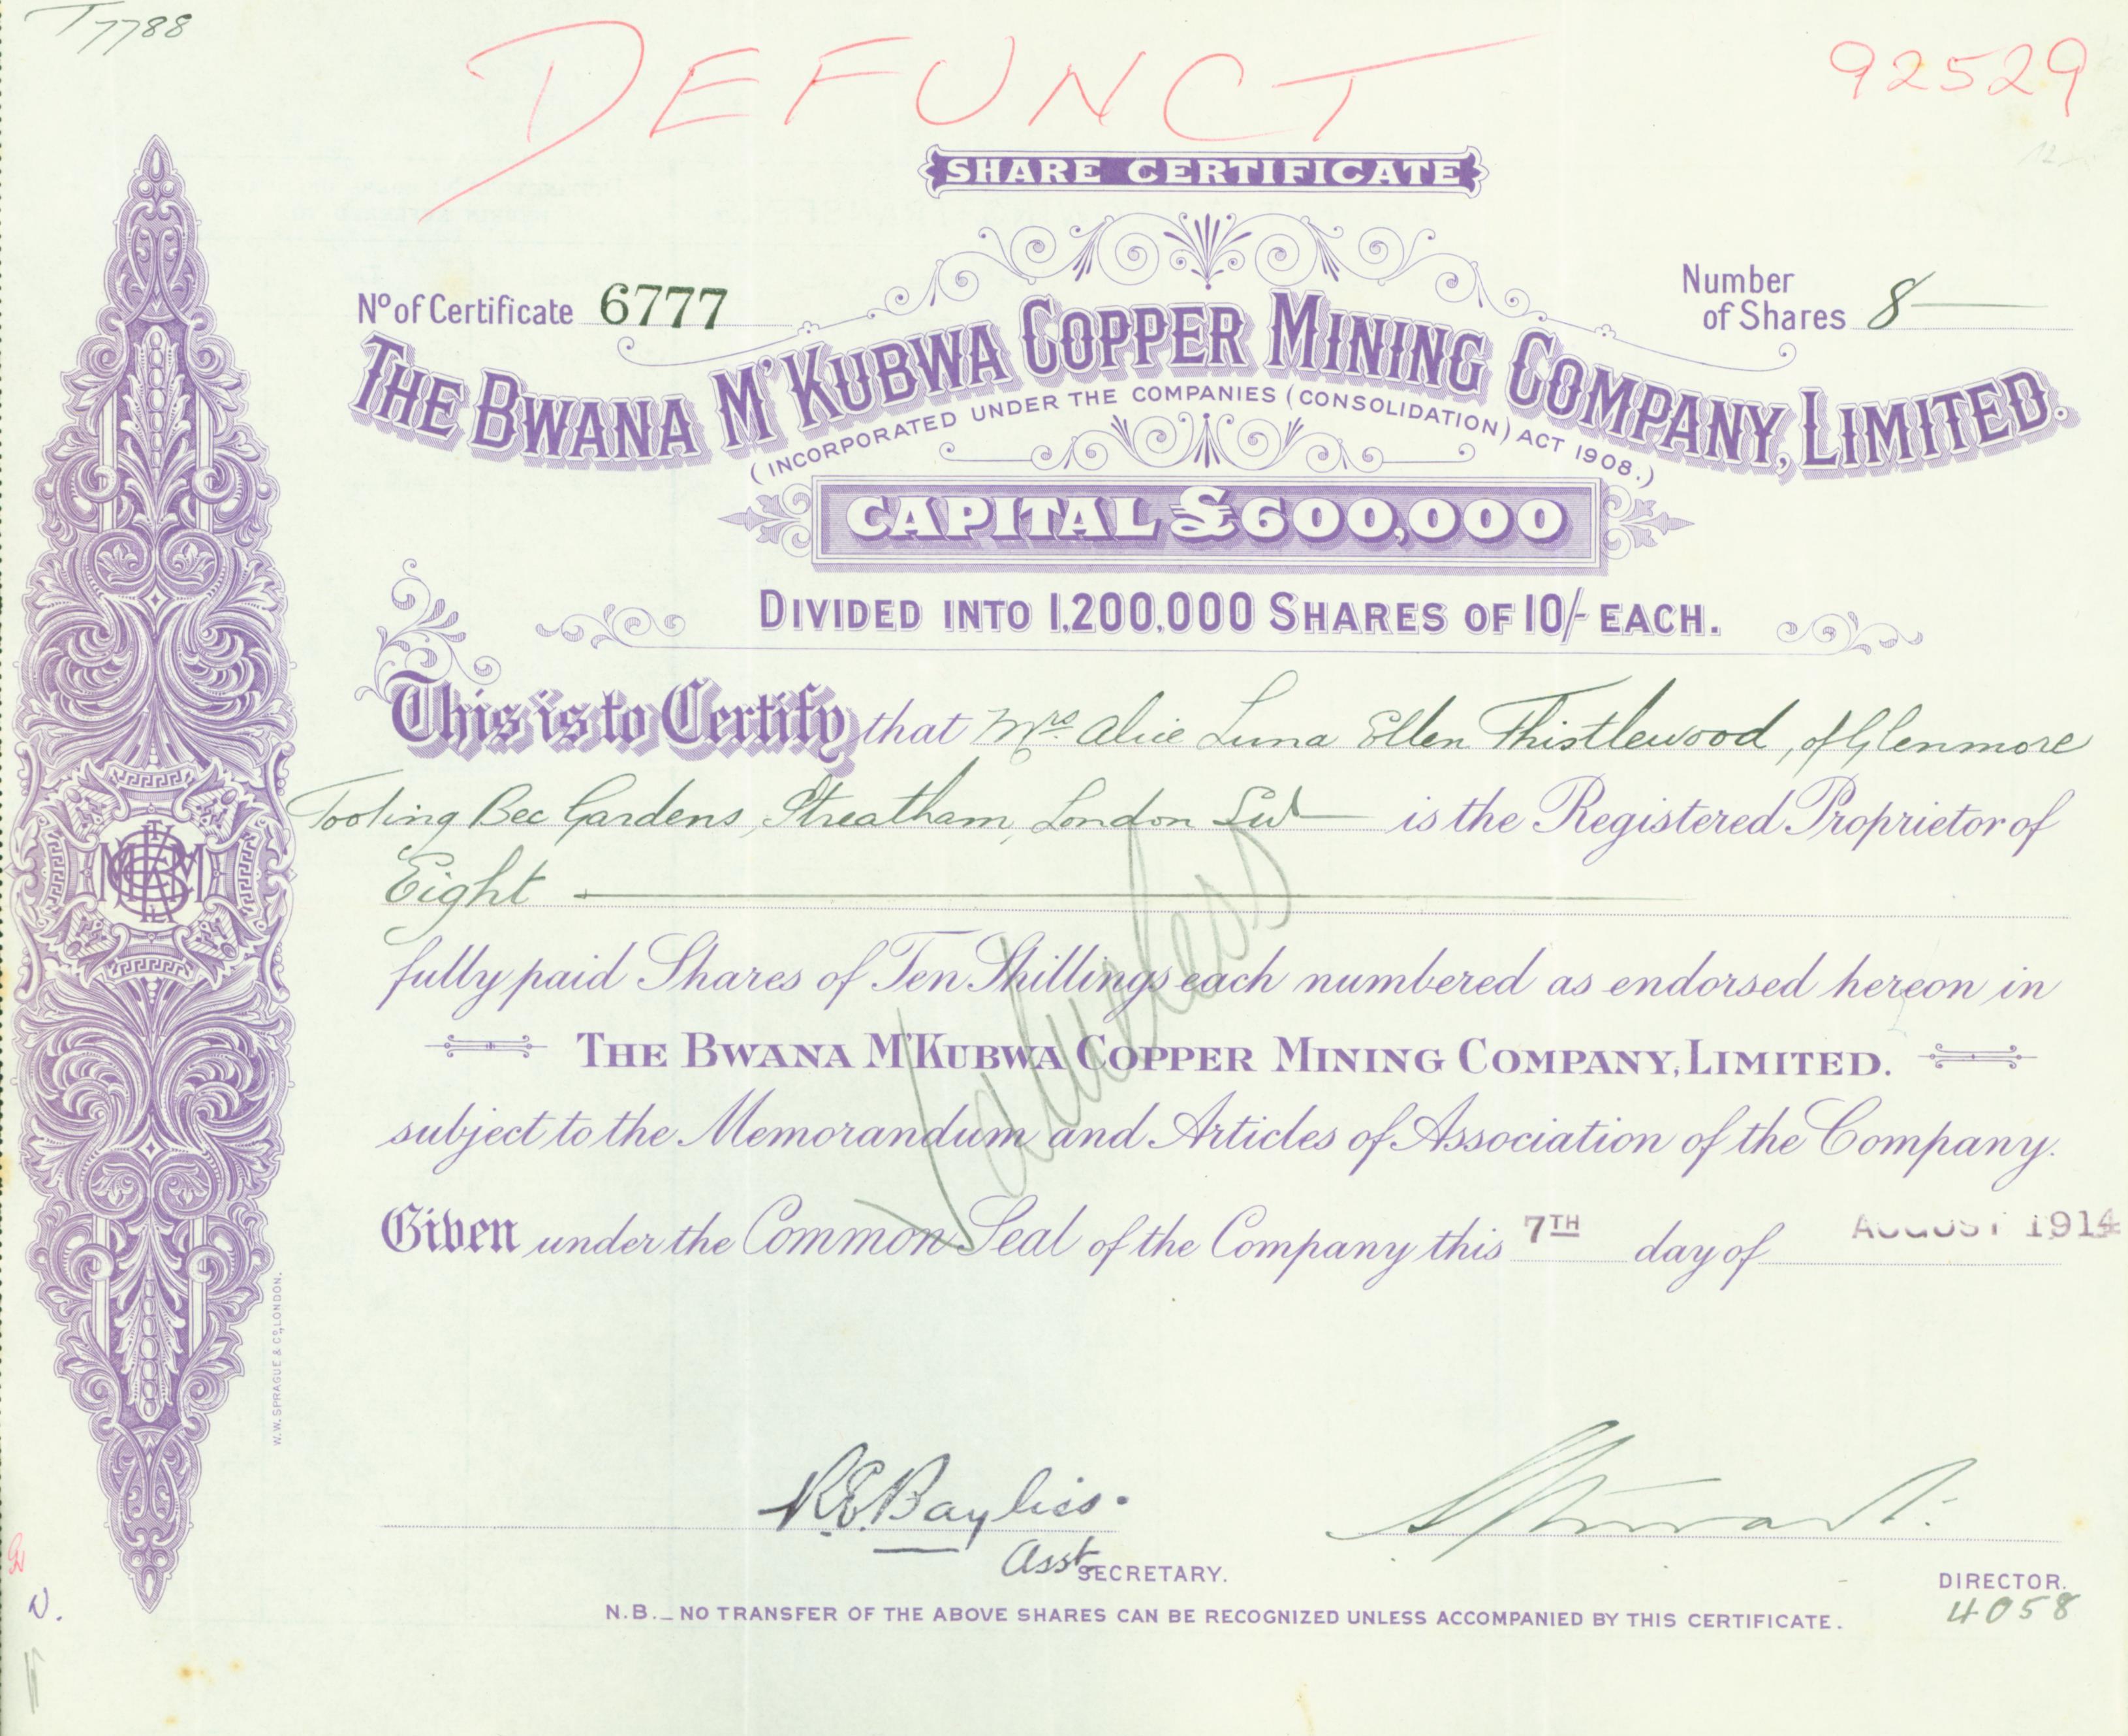 T7788
DEFUNCT
92529
SHARE CERTIFICATE
Nº of Certificate 6777
Number of Shares 8
THE BWANA M'KUBWA COPPER MINING COMPANY, LIMITED.
(INCORPORATED UNDER THE COMPANIES (CONSOLIDATION) ACT 1908.)
CAPITAL £600,000
DIVIDED INTO 1,200,000 SHARES OF 10/- EACH.
This is to Certify that Mrs. Alice Luna Ellen Thistlewood, of Glenmore
Tooting Bec Gardens, Streatham, London SW is the Registered Proprietor of
Eight
fully paid Shares of Ten Shillings each numbered as endorsed hereon in
THE BWANA M'KUBWA COPPER MINING COMPANY, LIMITED.
subject to the Memorandum and Articles of Association of the Company.
Valueless
Given under the Common Seal of the Company this 7TH day of AUGUST 1914
W.W. SPRAGUE & Cº LONDON.
R.E. Bayliss.
Asst SECRETARY.
DIRECTOR.
N.B._ NO TRANSFER OF THE ABOVE SHARES CAN BE RECOGNIZED UNLESS ACCOMPANIED BY THIS CERTIFICATE.
4058
N.